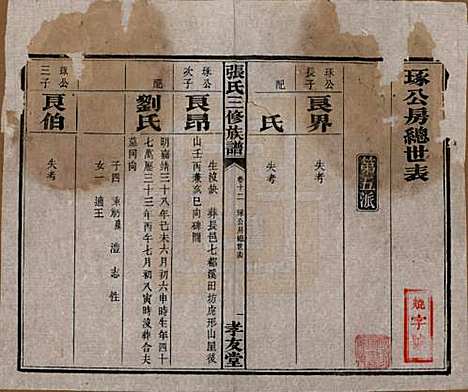 琢公房總世表
第五派
琢公
長子
良界
失考
配
氏
失考
張氏三修族譜
卷十二
琢公房總世表
一
孝友堂
琢公
次子
良昂
生沒缺
葬長邑七都溪田坊虎形山屋後
山壬丙兼亥巳向碑闕
配
劉氏
明嘉靖三十八年己未六月初六申時生四十
七萬曆三十三年丙午七月初八寅時沒葬合夫
墓同向
子四
澧
志
性
女一
適王
琢公
三子
良伯
失考